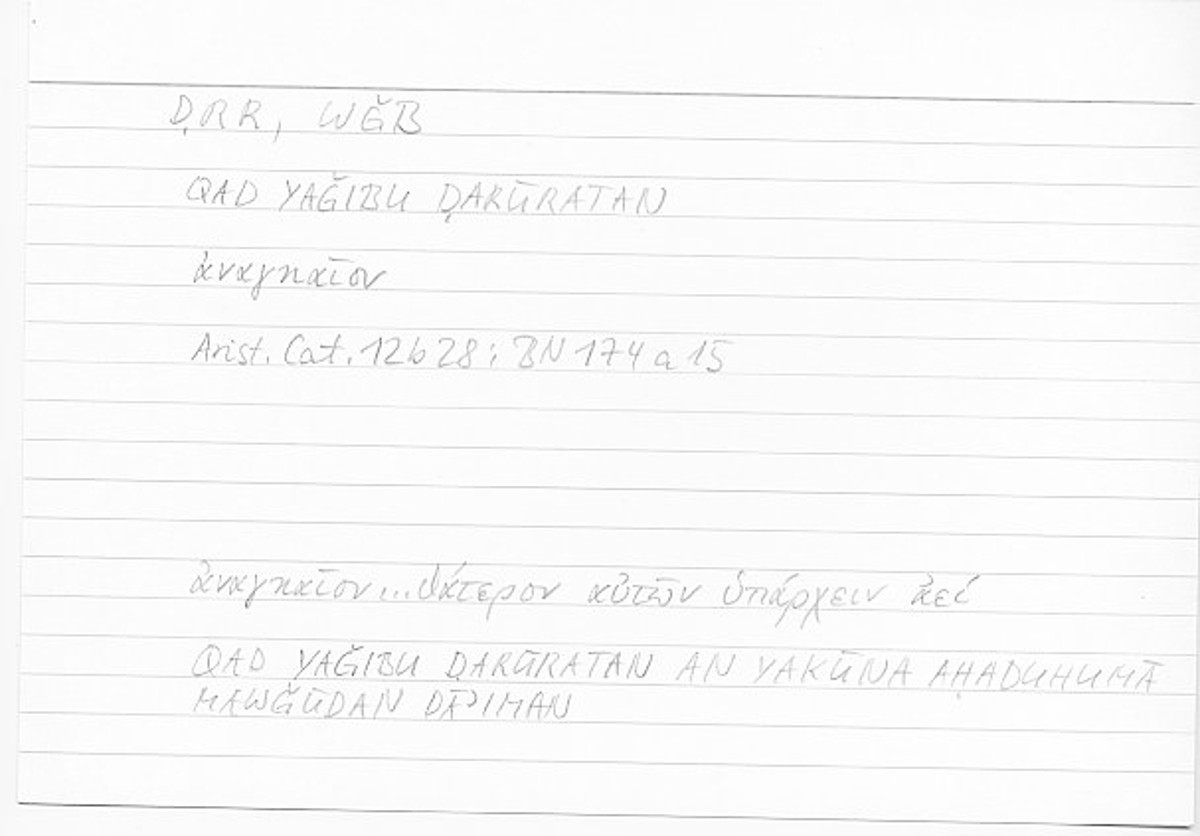 ḌRR, WǦB
QAD YAǦIBU ḌARŪRATAN
ἀναγκαῖον
Arist. Cat. 12b28; BN 174a15
ἀναγκαῖον...θάτερον αὐτῶν ὑπάρχειν ἀεί
QAD YAǦIBU ḌARŪRATAN AN YAKŪNA AḤADUHUMĀ
MAWǦŪDAN DĀʾIMAN